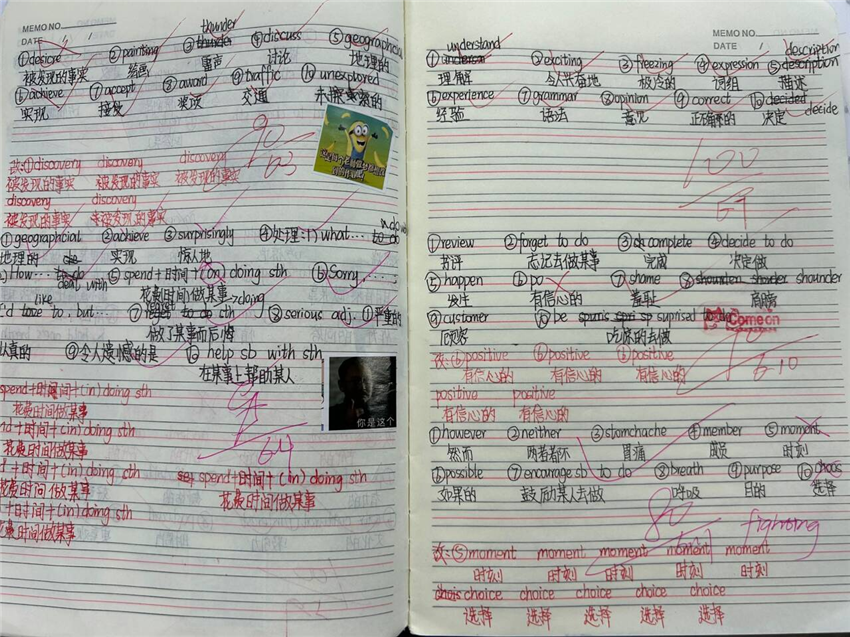 MEMO NO.
DATE
thunder
①desicre ②painting ③thunder ④discuss ⑤geographical
被发现的事实 绘画 雷声 讨论 地理的
⑥achieve ⑦accept ⑧award ⑨traffic ⑩unexplored
实现 接受 奖项 交通 未探索的
90
6.3
改:①discovery discovery discovery
被发现的事实 被发现的事实 被发现的事实
discovery discovery
被发现的事实 未被发现的事实
①geographcial ②achieve ③surprisingly ④处理:1) what… to do
地理的 实现 惊人地
2) How… to do ⑤spend+时间+(in) doing sth ⑥Sorry……
deal with 花费时间做某事→doing
like
I'd to to, but… ⑦ to do sth ⑧serious adj. ①严重的
做了某事而后悔
认真的 ⑨令人遗憾的是 ⑩help sb with sth
在某事上帮助某人
你是这个
6.4
spend+时间+(in)doing sth
花费时间做某事
nd+时间+(in)doing sth
花费时间做某事
d+时间+(in)doing sth spend+时间+(in)doing sth
花费时间做某事 花费时间做某事
+时间+(in)doing sth
花费时间做某事
MEMO NO.
DATE
understand description
① ②exciting ③freezing ④expression ⑤description
理解 令人兴奋地 极冷的 词组 描述
⑥experience ⑦grammar ⑧opinion ⑨correct ⑩decided decide
经验 语法 意见 正确的 决定
100
①review ②forget to do ③ complete ④decide to do
书评 忘记去做某事 完成 决定做
⑤happen ⑥po ⑦shame ⑧shounder
发生 有信心的 羞耻 肩膀
⑨customer ⑩be suprised to do
顾客 吃惊的去做
Come on
改:⑥positive ⑥positive ⑥positive
有信心的 有信心的 有信心的
6.10
positive positive
有信心的 有信心的
①however ②neither ③stomchache ④member ⑤moment
然而 两者都不 胃痛 成员 时刻
⑥possible ⑦encourage sb to do ⑧breath ⑨purpose ⑩chois
如果的 鼓励某人去做 呼吸 目的 选择
80
fighting
改:⑤moment moment moment moment moment
时刻 时刻 时刻 时刻 时刻
chois choice choice choice choice choice
选择 选择 选择 选择 选择